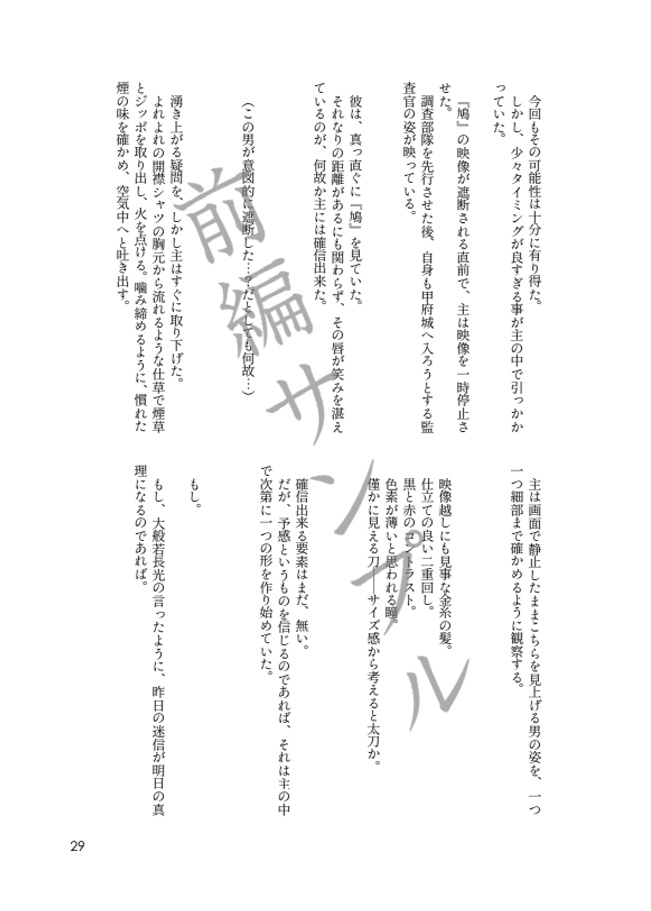 今回もその可能性は十分に有り得た。
しかし、少々タイミングが良すぎる事が主の中で引っかか
っていた。
『鳩』の映像が遮断される直前で、主は映像を一時停止さ
せた。
調査部隊を先行させた後、自身も甲府城へ入ろうとする監
査官の姿が映っている。
彼は、真っ直ぐに『鳩』を見ていた。
それなりの距離があるにも関わらず、その唇が笑みを湛え
ているのが、何故か主には確信出来た。
(この男が意図的に遮断した…？だとしても何故…)
湧き上がる疑問を、しかし主はすぐに取り下げた。
よれよれの開襟シャツの胸元から流れるような仕草で煙草
とジッポを取り出し、火を点ける。噛み締めるように、慣れた
煙の味を確かめ、空気中へと吐き出す。
主は画面で静止したままこちらを見上げる男の姿を、一つ
一つ細部まで確かめるように観察する。
映像越しにも見事な金糸の髪。
仕立ての良い二重回し。
黒と赤のコントラスト。
色素が薄いと思われる瞳。
僅かに見える刀――サイズ感から考えると太刀か。
確信出来る要素はまだ、無い。
だが、予感というものを信じるのであれば、それは主の中
で次第に一つの形を作り始めていた。
もし。
もし、大般若長光の言ったように、昨日の迷信が明日の真
理になるのであれば。
前編サンプル
29